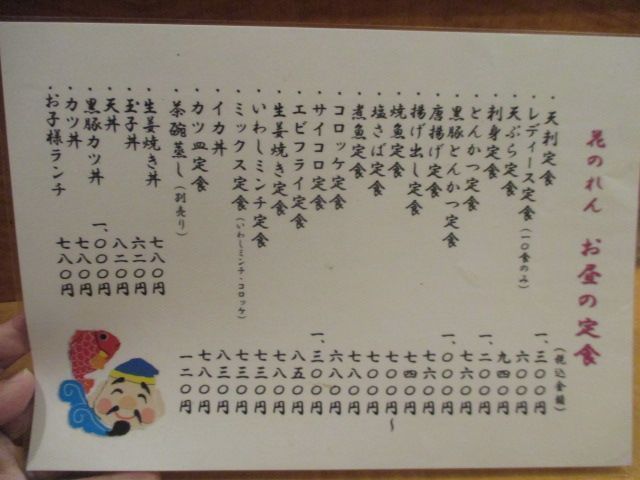 花のれん お昼の定食
(税込金額)
・天刺定食 一、三〇〇円
・レディース定食(一〇食のみ) 六〇〇円
・天ぷら定食 九四〇円
・刺身定食 一、二〇〇円
・とんかつ定食 七六〇円
・黒豚とんかつ定食 一、〇〇〇円
・唐揚げ定食 七六〇円
・揚げ出し定食 七四〇円
・焼魚定食 七〇〇円〜
・塩さば定食 七〇〇円
・煮魚定食 七八〇円
・コロッケ定食 六八〇円
・サイコロ定食 一、三〇〇円
・エビフライ定食 八五〇円
・生姜焼き定食 七八〇円
・いわしミンチ定食 七三〇円
・ミックス定食(いわしミンチ・コロッケ) 七三〇円
・イカ丼 八三〇円
・カツ皿定食 七八〇円
・茶碗蒸し(別売り) 一二〇円
・生姜焼き丼 七八〇円
・玉子丼 六二〇円
・天丼 八二〇円
・黒豚カツ丼 一、〇〇〇円
・カツ丼 七八〇円
・お子様ランチ 七八〇円